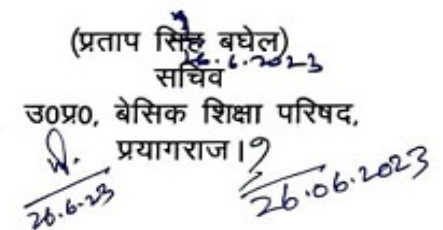 (प्रताप सिंह बघेल)
26.6.2023
सचिव
उ०प्र०, बेसिक शिक्षा परिषद,
प्रयागराज।
26.6.23
26.06.2023